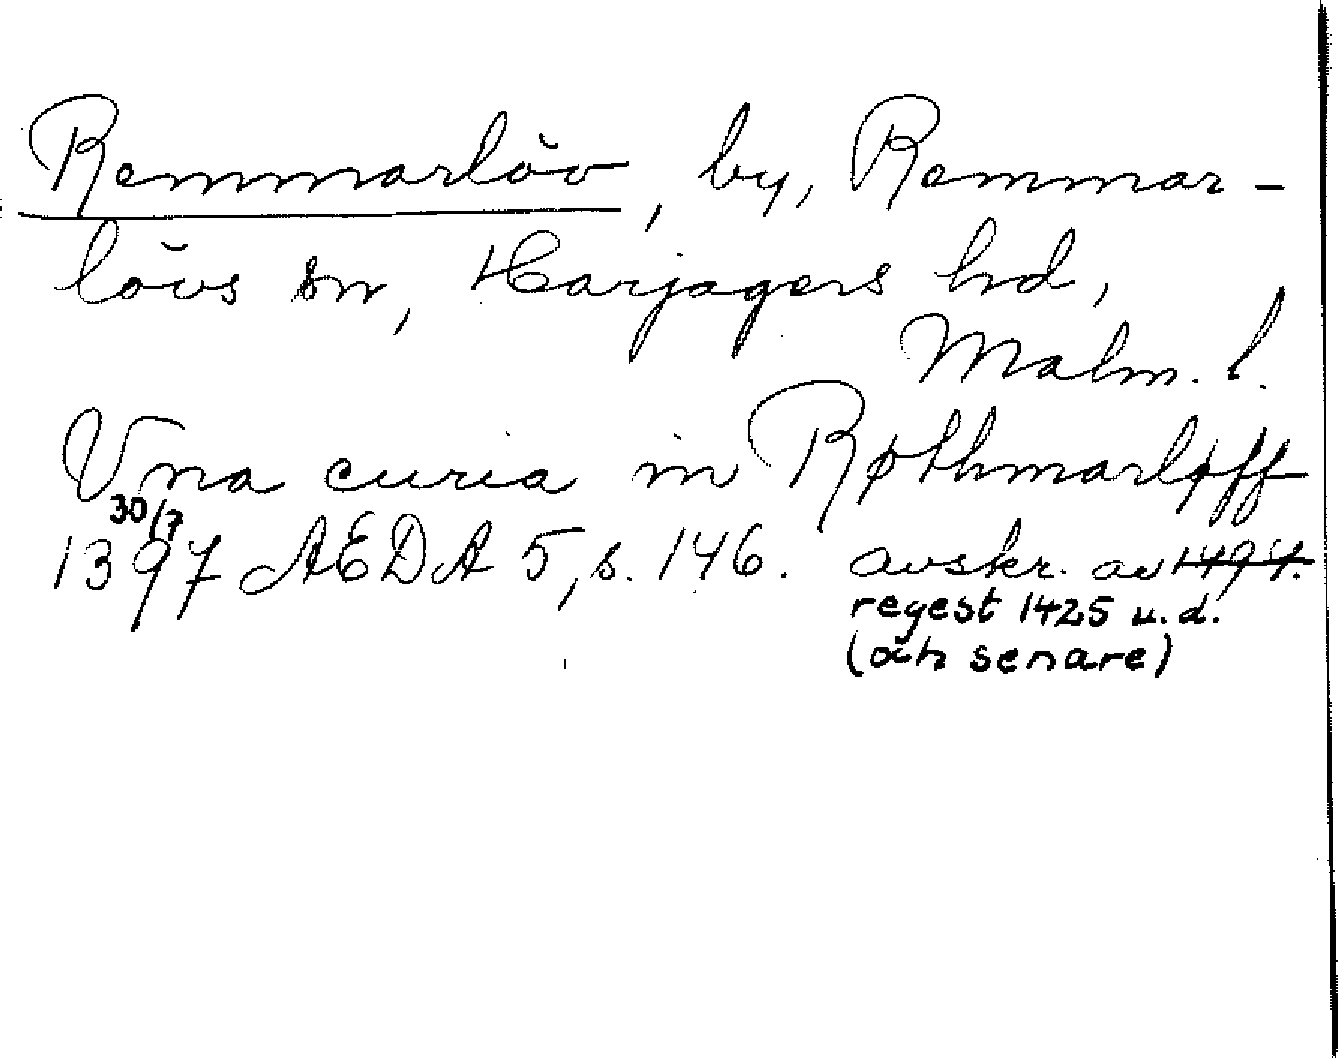 Remmarlöv, by, Remmar-
lövs sn, Harjagers hd,
Malm. l.
Vna curia in Røthmarløff
30/7
1397 AEDA 5, s. 146. avskr. av 1494.
regest 1425 u.d.
(och senare)